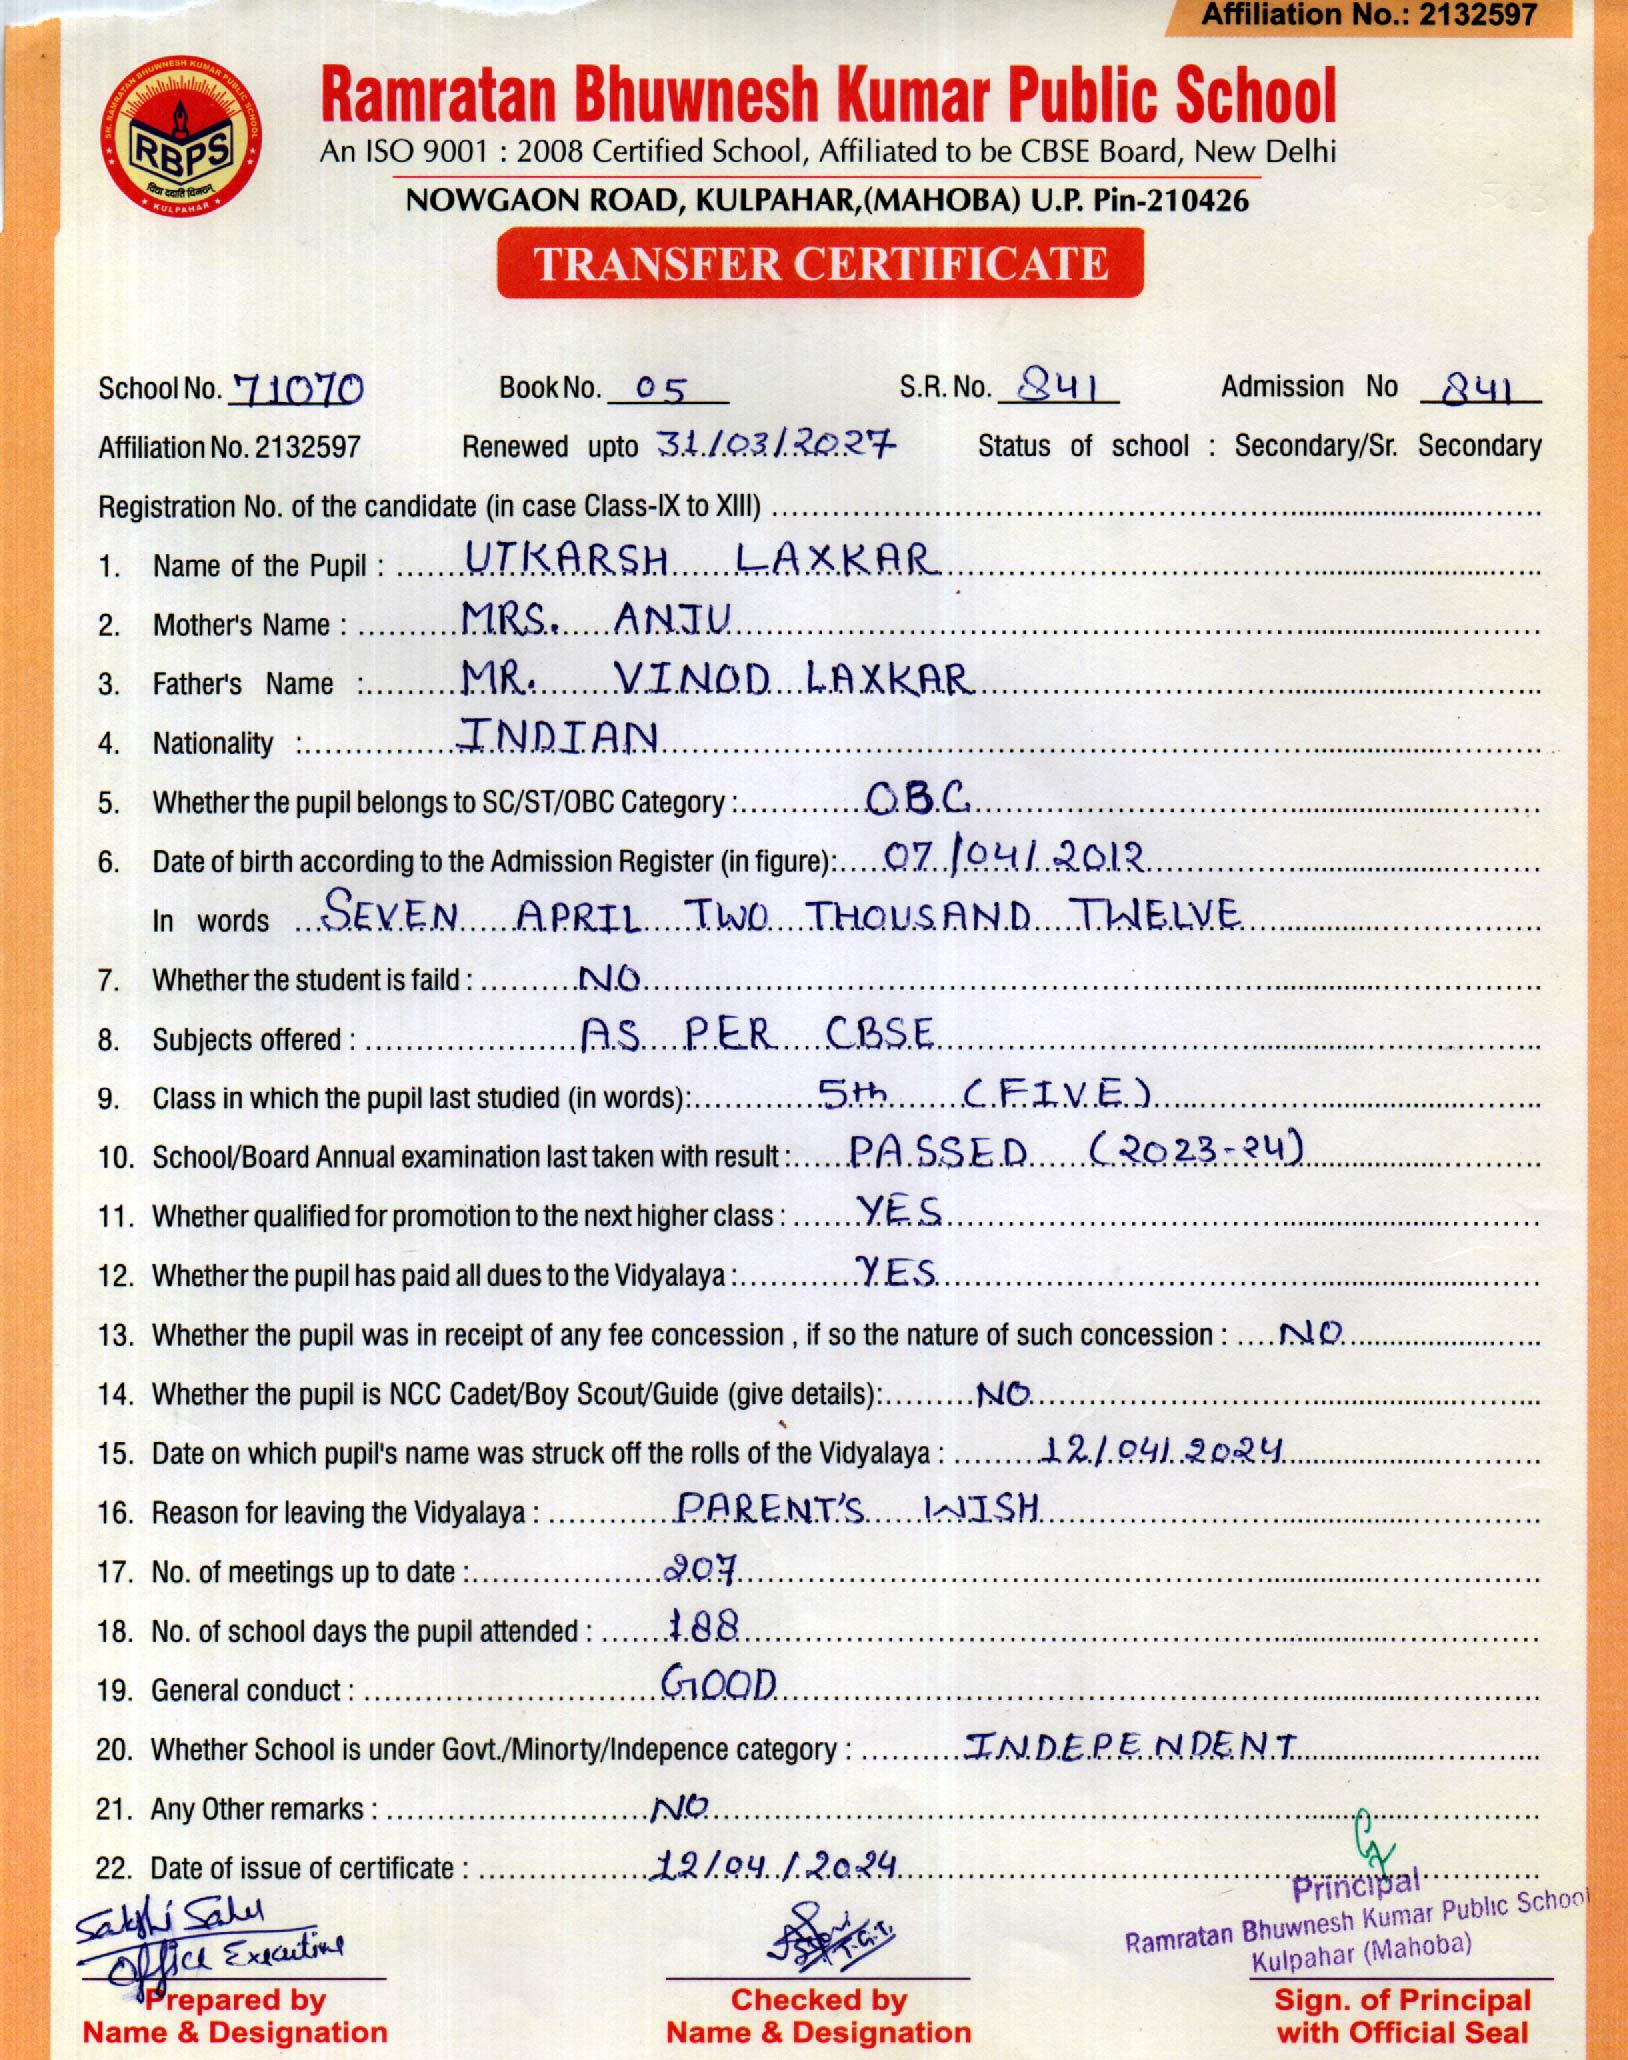 Affiliation No.: 2132597
SH. RAMRATAN BHUWNESH KUMAR PUBLIC SCHOOL
RBPS
विद्या ददाति विनयम्
KULPAHAR
Ramratan Bhuwnesh Kumar Public School
An ISO 9001 : 2008 Certified School, Affiliated to be CBSE Board, New Delhi
NOWGAON ROAD, KULPAHAR,(MAHOBA) U.P. Pin-210426
TRANSFER CERTIFICATE
School No. 71070 Book No. 05 S.R. No. 841 Admission No 841
Affiliation No. 2132597 Renewed upto 31/03/2027 Status of school : Secondary/Sr. Secondary
Registration No. of the candidate (in case Class-IX to XIII)
1. Name of the Pupil : UTKARSH LAXKAR
2. Mother's Name : MRS. ANJU
3. Father's Name : MR. VINOD LAXKAR
4. Nationality : INDIAN
5. Whether the pupil belongs to SC/ST/OBC Category : OBC
6. Date of birth according to the Admission Register (in figure): 07/04/2012
In words SEVEN APRIL TWO THOUSAND TWELVE
7. Whether the student is faild : NO
8. Subjects offered : AS PER CBSE
9. Class in which the pupil last studied (in words): 5th (FIVE)
10. School/Board Annual examination last taken with result : PASSED (2023-24)
11. Whether qualified for promotion to the next higher class : YES
12. Whether the pupil has paid all dues to the Vidyalaya : YES
13. Whether the pupil was in receipt of any fee concession , if so the nature of such concession : NO
14. Whether the pupil is NCC Cadet/Boy Scout/Guide (give details): NO
15. Date on which pupil's name was struck off the rolls of the Vidyalaya : 12/04/2024
16. Reason for leaving the Vidyalaya : PARENT'S WISH
17. No. of meetings up to date : 207
18. No. of school days the pupil attended : 188
19. General conduct : GOOD
20. Whether School is under Govt./Minorty/Indepence category : INDEPENDENT
21. Any Other remarks : NO
22. Date of issue of certificate : 12/04/2024
Sakshi Sahu
Office Executive
T.G.T.
Principal
Ramratan Bhuwnesh Kumar Public School
Kulpahar (Mahoba)
Prepared by
Name & Designation
Checked by
Name & Designation
Sign. of Principal
with Official Seal